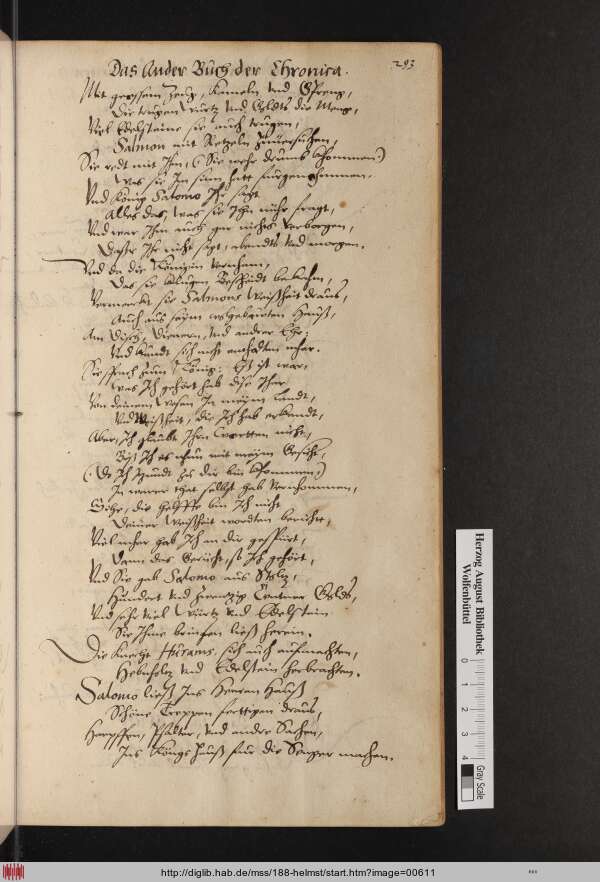 Das Ander Buch der Chronica.
293
Mit grossem Zeug, Kameln und
Die trugen Würtz und Goldts die Meng,
Viel Edelsteine sie auch trugen,
Salmon mit Retzeln zuuersuchen,
Sie redt mit Ihm (Sie wehr drumb khommen)
Was sie Im sinn hatt fürgenohmmen.
Und König Salomo Ihr sagt
Alles das, was sie Ihn nuhr fragt,
Und war Ihm auch gar nichts verborgen,
Das er Ihr nicht sagt, abendts und morgen.
Und da die Königin vernham,
Das sie klugen Bescheidt bekahm,
Vermerckt sie Salmons Weißheit draus,
Auch aus seym Hauß,
Am Tisch, Dienern, und andrer Ehr:
Und kundt sich nicht enthalten mher.
Sie sprach zum König: Eß ist war,
Was Ich gehört hab
Von deinem Wesen In meym Landt,
Und Weißheit, die Ich hab erkandt,
Aber, Ich glaubt Ihrn wortten nicht,
Biß Ich es nhun mit meym Gesicht,
(Do Ich itzundt zu dir bin khommen,)
In warer that selbst hab vernhommen,
Sihe, die helffte bin Ich nicht
Deiner Weißheit worden bericht,
Viel mher hab Ich an dir gespürt,
Dann das Gerücht, so Ich gehört,
Und Sie gab Salomo aus
Hundert und zwentzig Centner Goldt,
Und sehr viel Würtz und Edelstein
Sie Ihme bringen ließ herein.
Die Knecht Hurams, sich auch auffmachten,
Hebenholtz und Edelstein herbrachten.
Salomo ließ Ins Herren Hauß
Schöne Treppen fertigen draus,
Harpffen, Psalter, und andre Sachen,
Ins Königs Hauß für die Senger machen.
Herzog August Bibliothek
Wolfenbüttel
0 1 2 3 4
Gray Scale
http://diglib.hab.de/mss/188-helmst/start.htm?image=00611